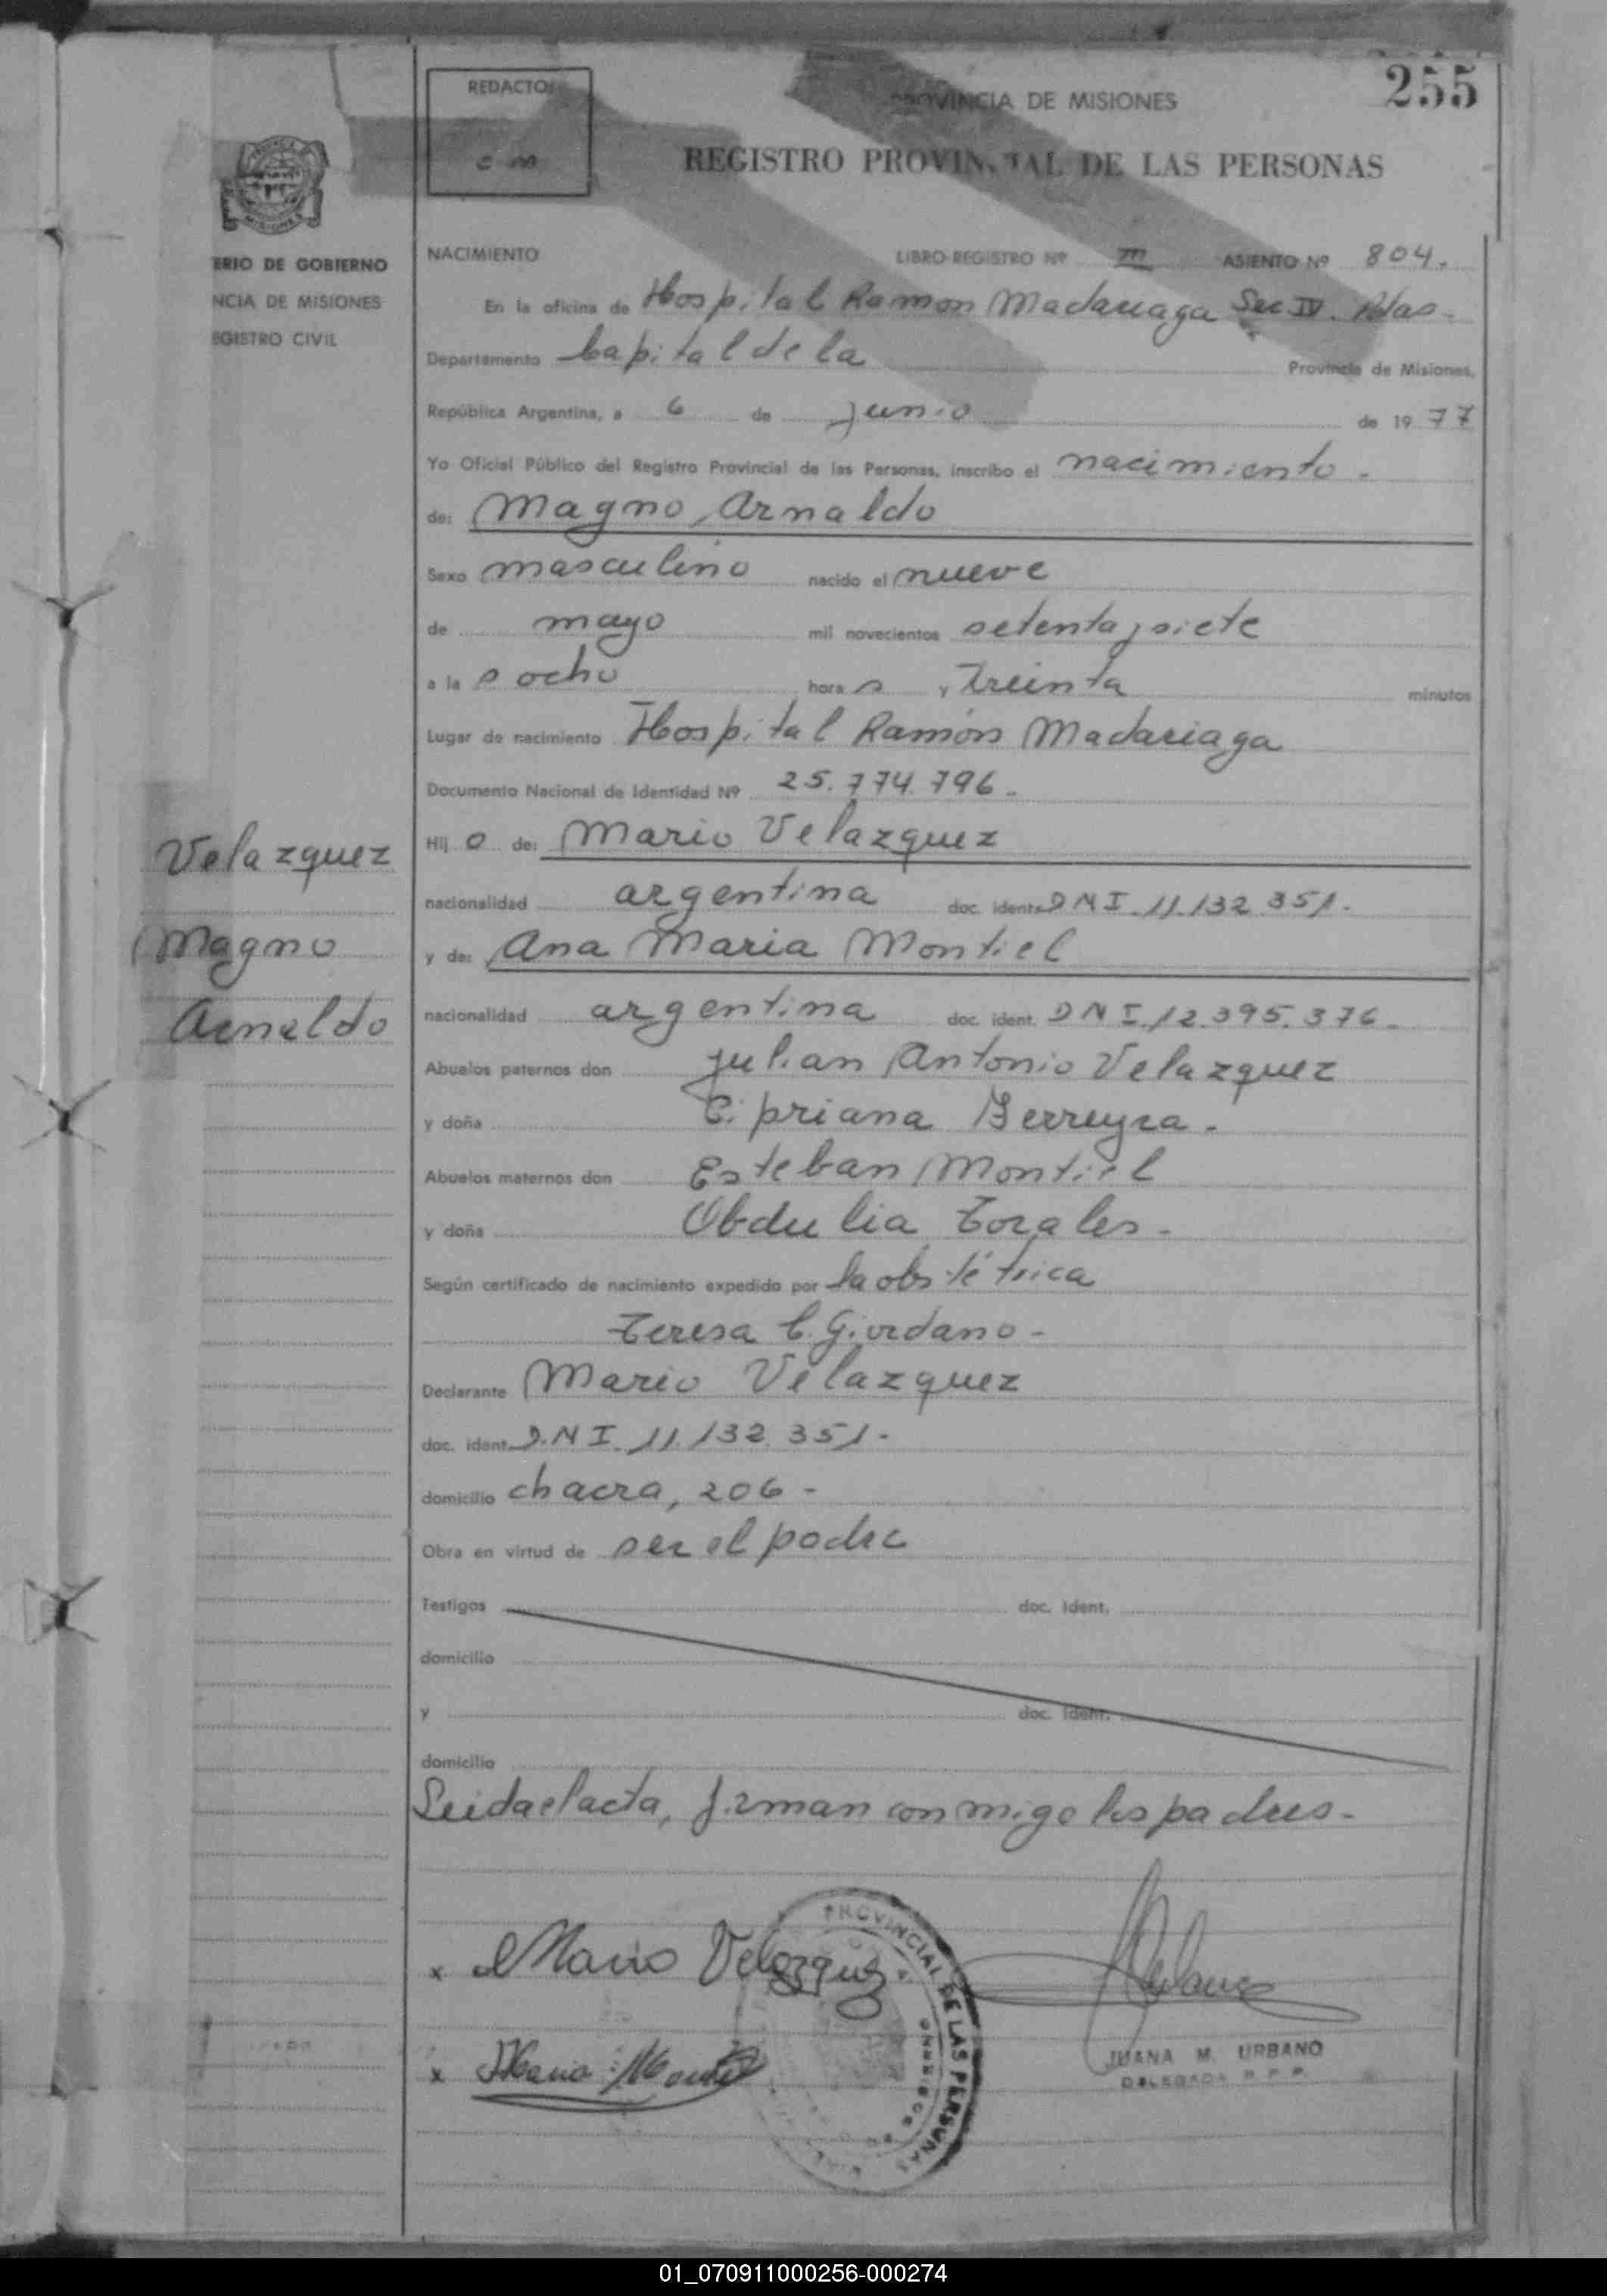 255
REDACTOR
C M
PROVINCIA DE MISIONES
REGISTRO PROVINCIAL DE LAS PERSONAS
ERIO DE GOBIERNO
NCIA DE MISIONES
EGISTRO CIVIL
NACIMIENTO LIBRO-REGISTRO Nº III ASIENTO Nº 804.
En la oficina de Hospital Ramon Madariaga Sec IV. Pdas-
Departamento Capital de la Provincia de Misiones,
República Argentina, a 6 de junio de 1977
Yo Oficial Público del Registro Provincial de las Personas, inscribo el nacimiento.
de: Magno, Arnaldo
Sexo masculino nacido el nueve
de mayo mil novecientos setenta y siete
a las ocho horas y treinta minutos
Lugar de nacimiento Hospital Ramón Madariaga
Documento Nacional de Identidad Nº 25.774.796.
Hijo de: Mario Velazquez
Velazquez
Magno
Arnaldo
nacionalidad argentina doc. ident. DNI. 11.132.351.
y de: Ana Maria Montiel
nacionalidad argentina doc. ident. DNI. 12.395.376.
Abuelos paternos don Julian Antonio Velazquez
y doña Cipriana Ferreyra.
Abuelos maternos don Esteban Montiel
y doña Obdulia Torales-
Según certificado de nacimiento expedido por la obstétrica
Teresa C. Giordano-
Declarante Mario Velazquez
doc. ident. D.N I. 11.132.351-
domicilio chacra, 206-
Obra en virtud de ser el padre
Testigos doc. Ident.
domicilio
y doc. Ident.
domicilio
Leida el acta, firman conmigo los padres-
x Mario Velazquez
x Maria Montiel
PROVINCIAL DE LAS PERSONAS
JUANA M. URBANO
DELEGADA R.P.P.
01_070911000256-000274